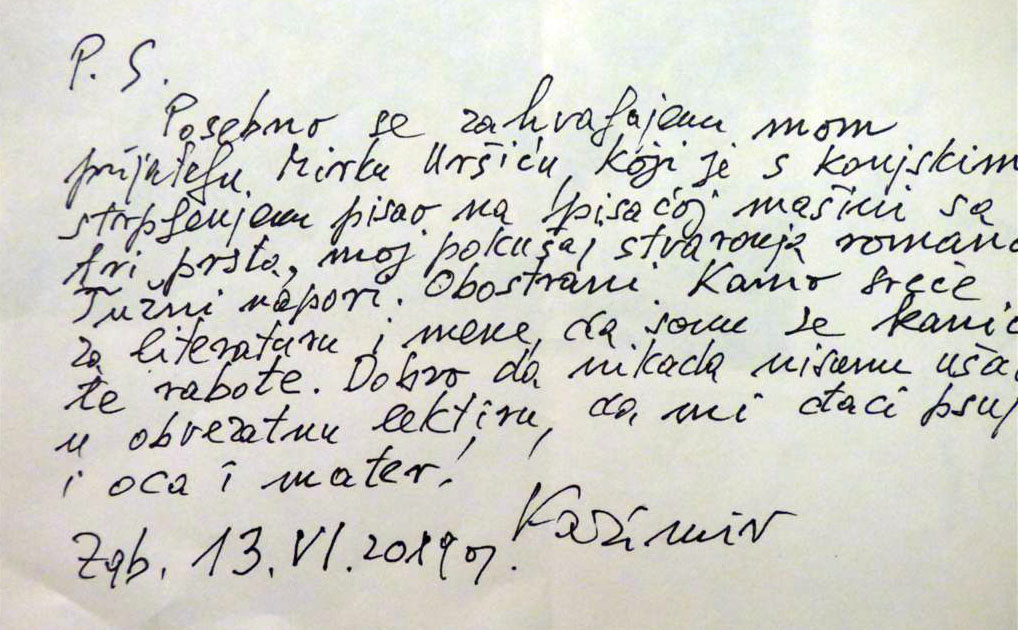 P. S.
Posebno se zahvaljujem mom
prijatelju Mirku Uršiću, koji je s konjskim
strpljenjem pisao na pisaćoj mašini sa
tri prsta, moj pokušaj stvaranja romana
Tužni napori. Obostrani. Kamo sreće
za literaturu i mene, da sam se kani
te rabote. Dobro da nikada nisam uša
u obvezatnu lektiru, da mi đaci psuj
i oca i mater!
Zgb. 13. VI. 2019 g. Kazimir